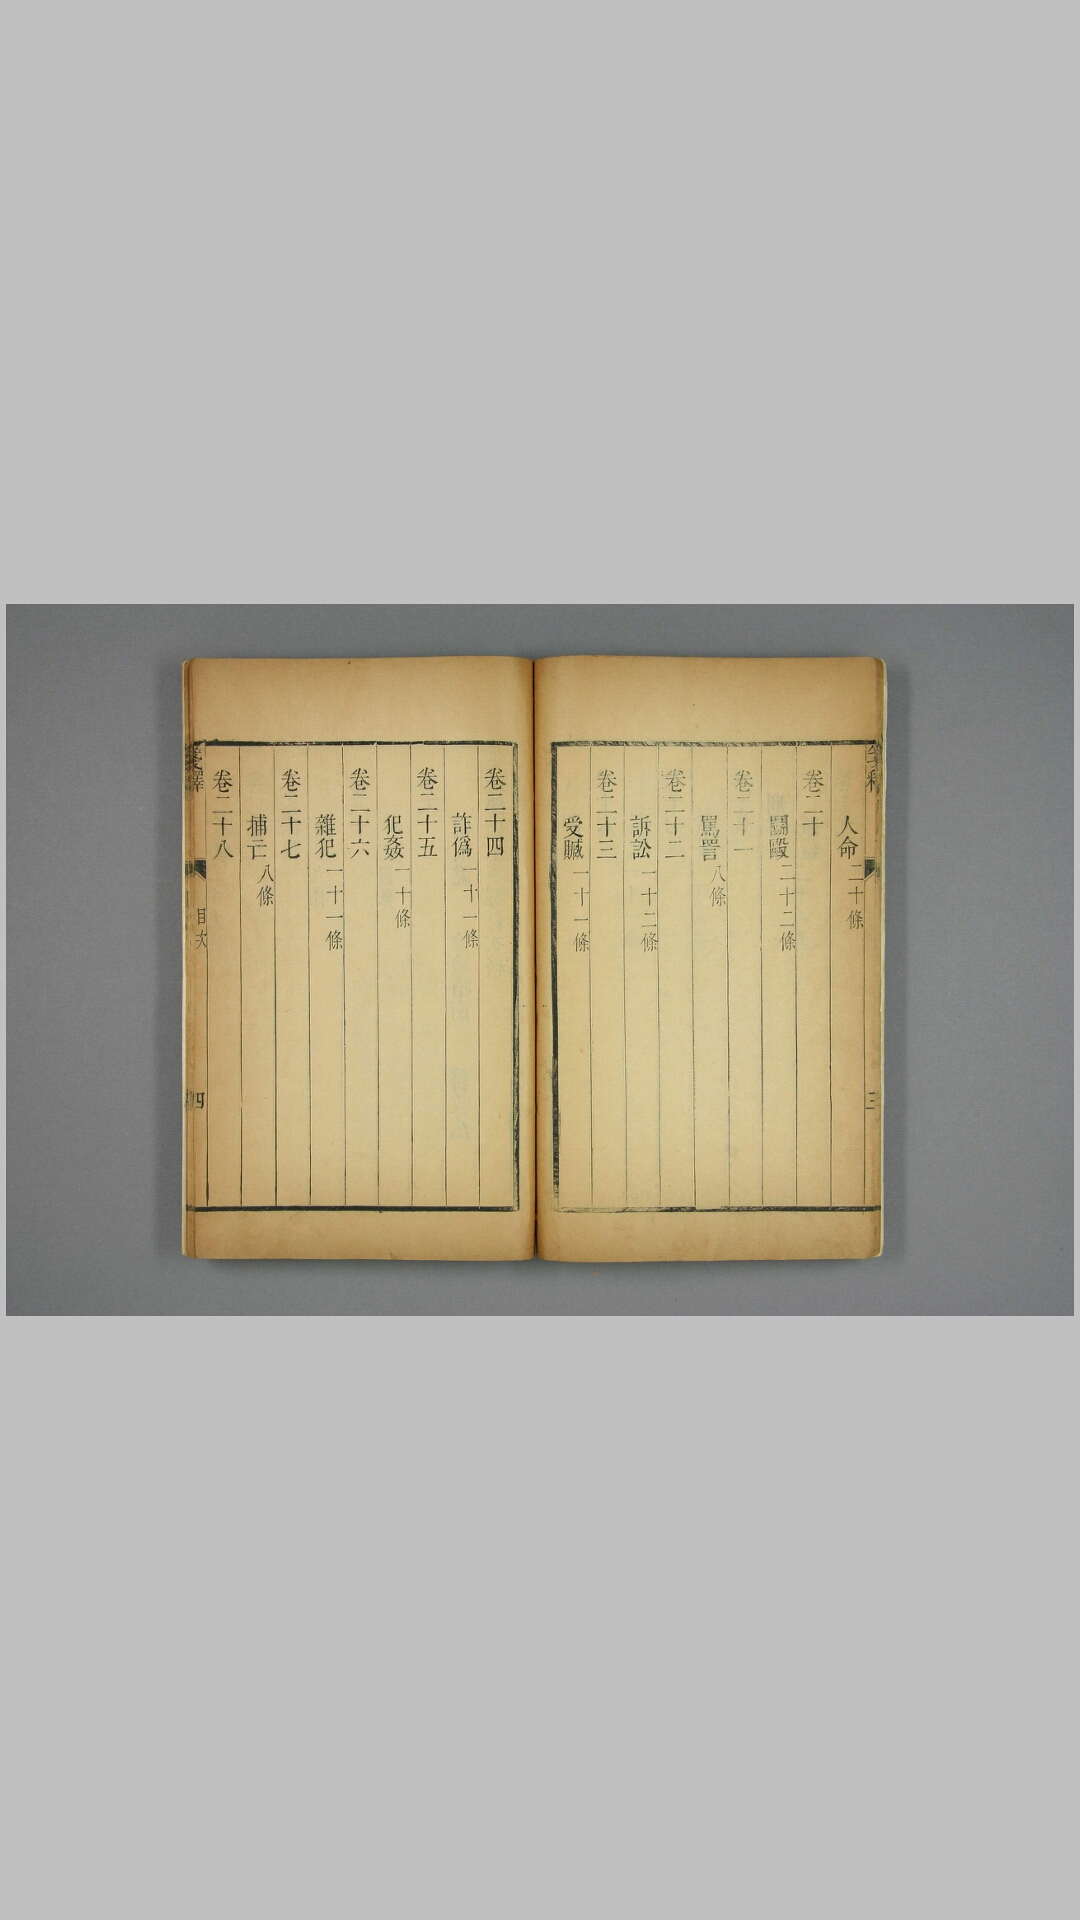 人命二十條
卷二十
鬬毆二十二條
卷二十一
罵詈八條
卷二十二
訴訟一十二條
卷二十三
受贓一十一條
三
卷二十四
詐僞一十一條
卷二十五
犯姦一十條
卷二十六
雜犯一十一條
卷二十七
捕亡八條
卷二十八
箋釋
目次
四